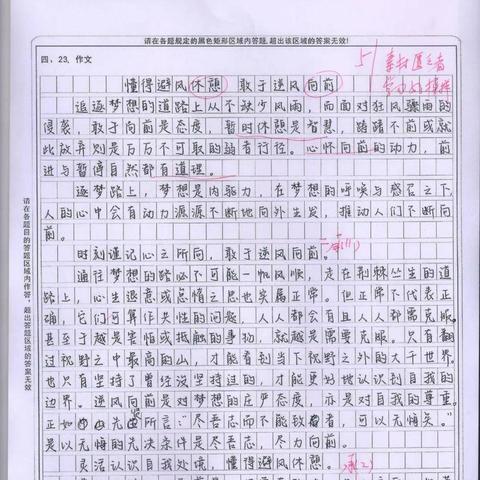 请在各题规定的黑色矩形区域内答题,超出该区域的答案无效!
四、23. 作文
51
懂得避风休憩 敢于逆风向前
追逐梦想的道路上从不缺少风雨,而面对狂风骤雨的
侵袭,敢于向前是态度,暂时休憩是智慧,踌躇不前或就
此放弃则是万万不可取的弱者行径。心怀向前的动力,前
进与暂停自然都有道理。
逐梦路上,梦想是内驱力,在梦想的呼唤与感召之下,
人的心中会有动力源源不断地向外生发,推动人们不断向
前。
时刻谨记心之所向,敢于逆风向前。
通往梦想的路必不可能一帆风顺,走在荆棘丛生的道
路上,心生退意或怠惰之思也实属正常。但正常不代表正
确,它们可算作共性的问题,人人都会有且人人都需克服。
甚至于越是害怕或抵触的事物,就越是需要克服。只有翻
过视野之中最高的山,才能看到当下视野之外的大千世界,
也只有坚持了曾经没坚持过的,才能更好地认识到自我的
边界。逆风向前是对梦想的庄严态度,亦是对自我的尊重。
正如 所言:“尽吾志而不能致者,可以无悔矣。”
是以无悔的先决条件是尽吾志,尽力向前。
灵活认识自我处境,懂得避风休憩。
请在各题目的答题区域内作答,超出答题区域的答案无效